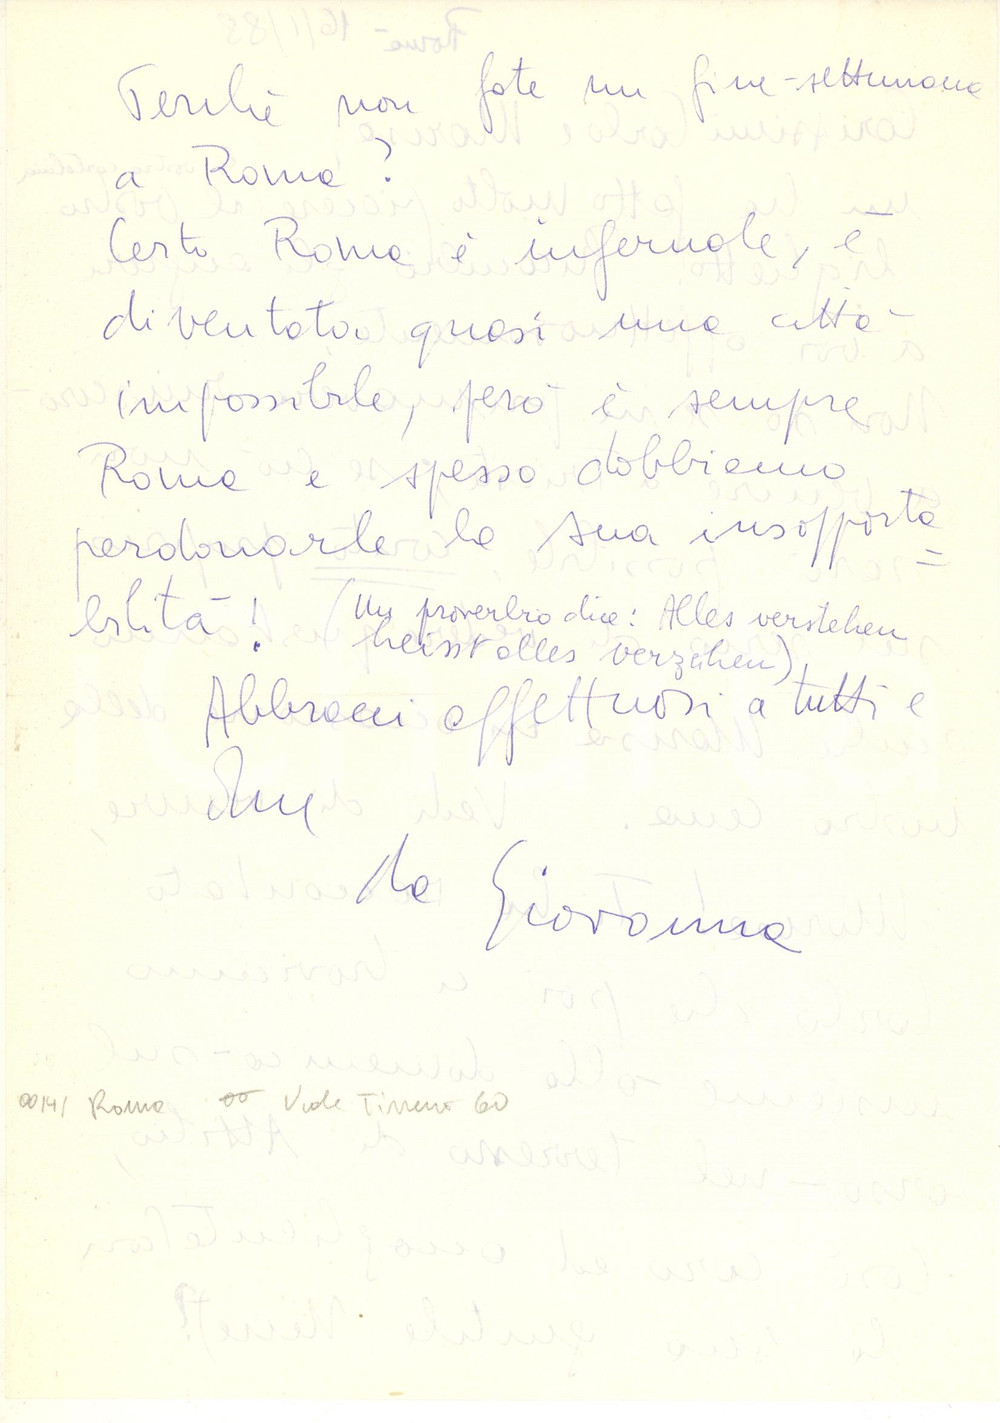 Perchè non fate un fine-settimana
a Roma?
Certo Roma è infernale, è
diventata quasi una città
impossibile, però è sempre
Roma e spesso dobbiamo
perdonarle la sua insopporta=
bilità! (Un proverbio dice: Alles verstehen
heisst alles verzeihen)
Abbracci affettuosi a tutti e
da Giovanna
00141 Roma Viale Tirreno 60